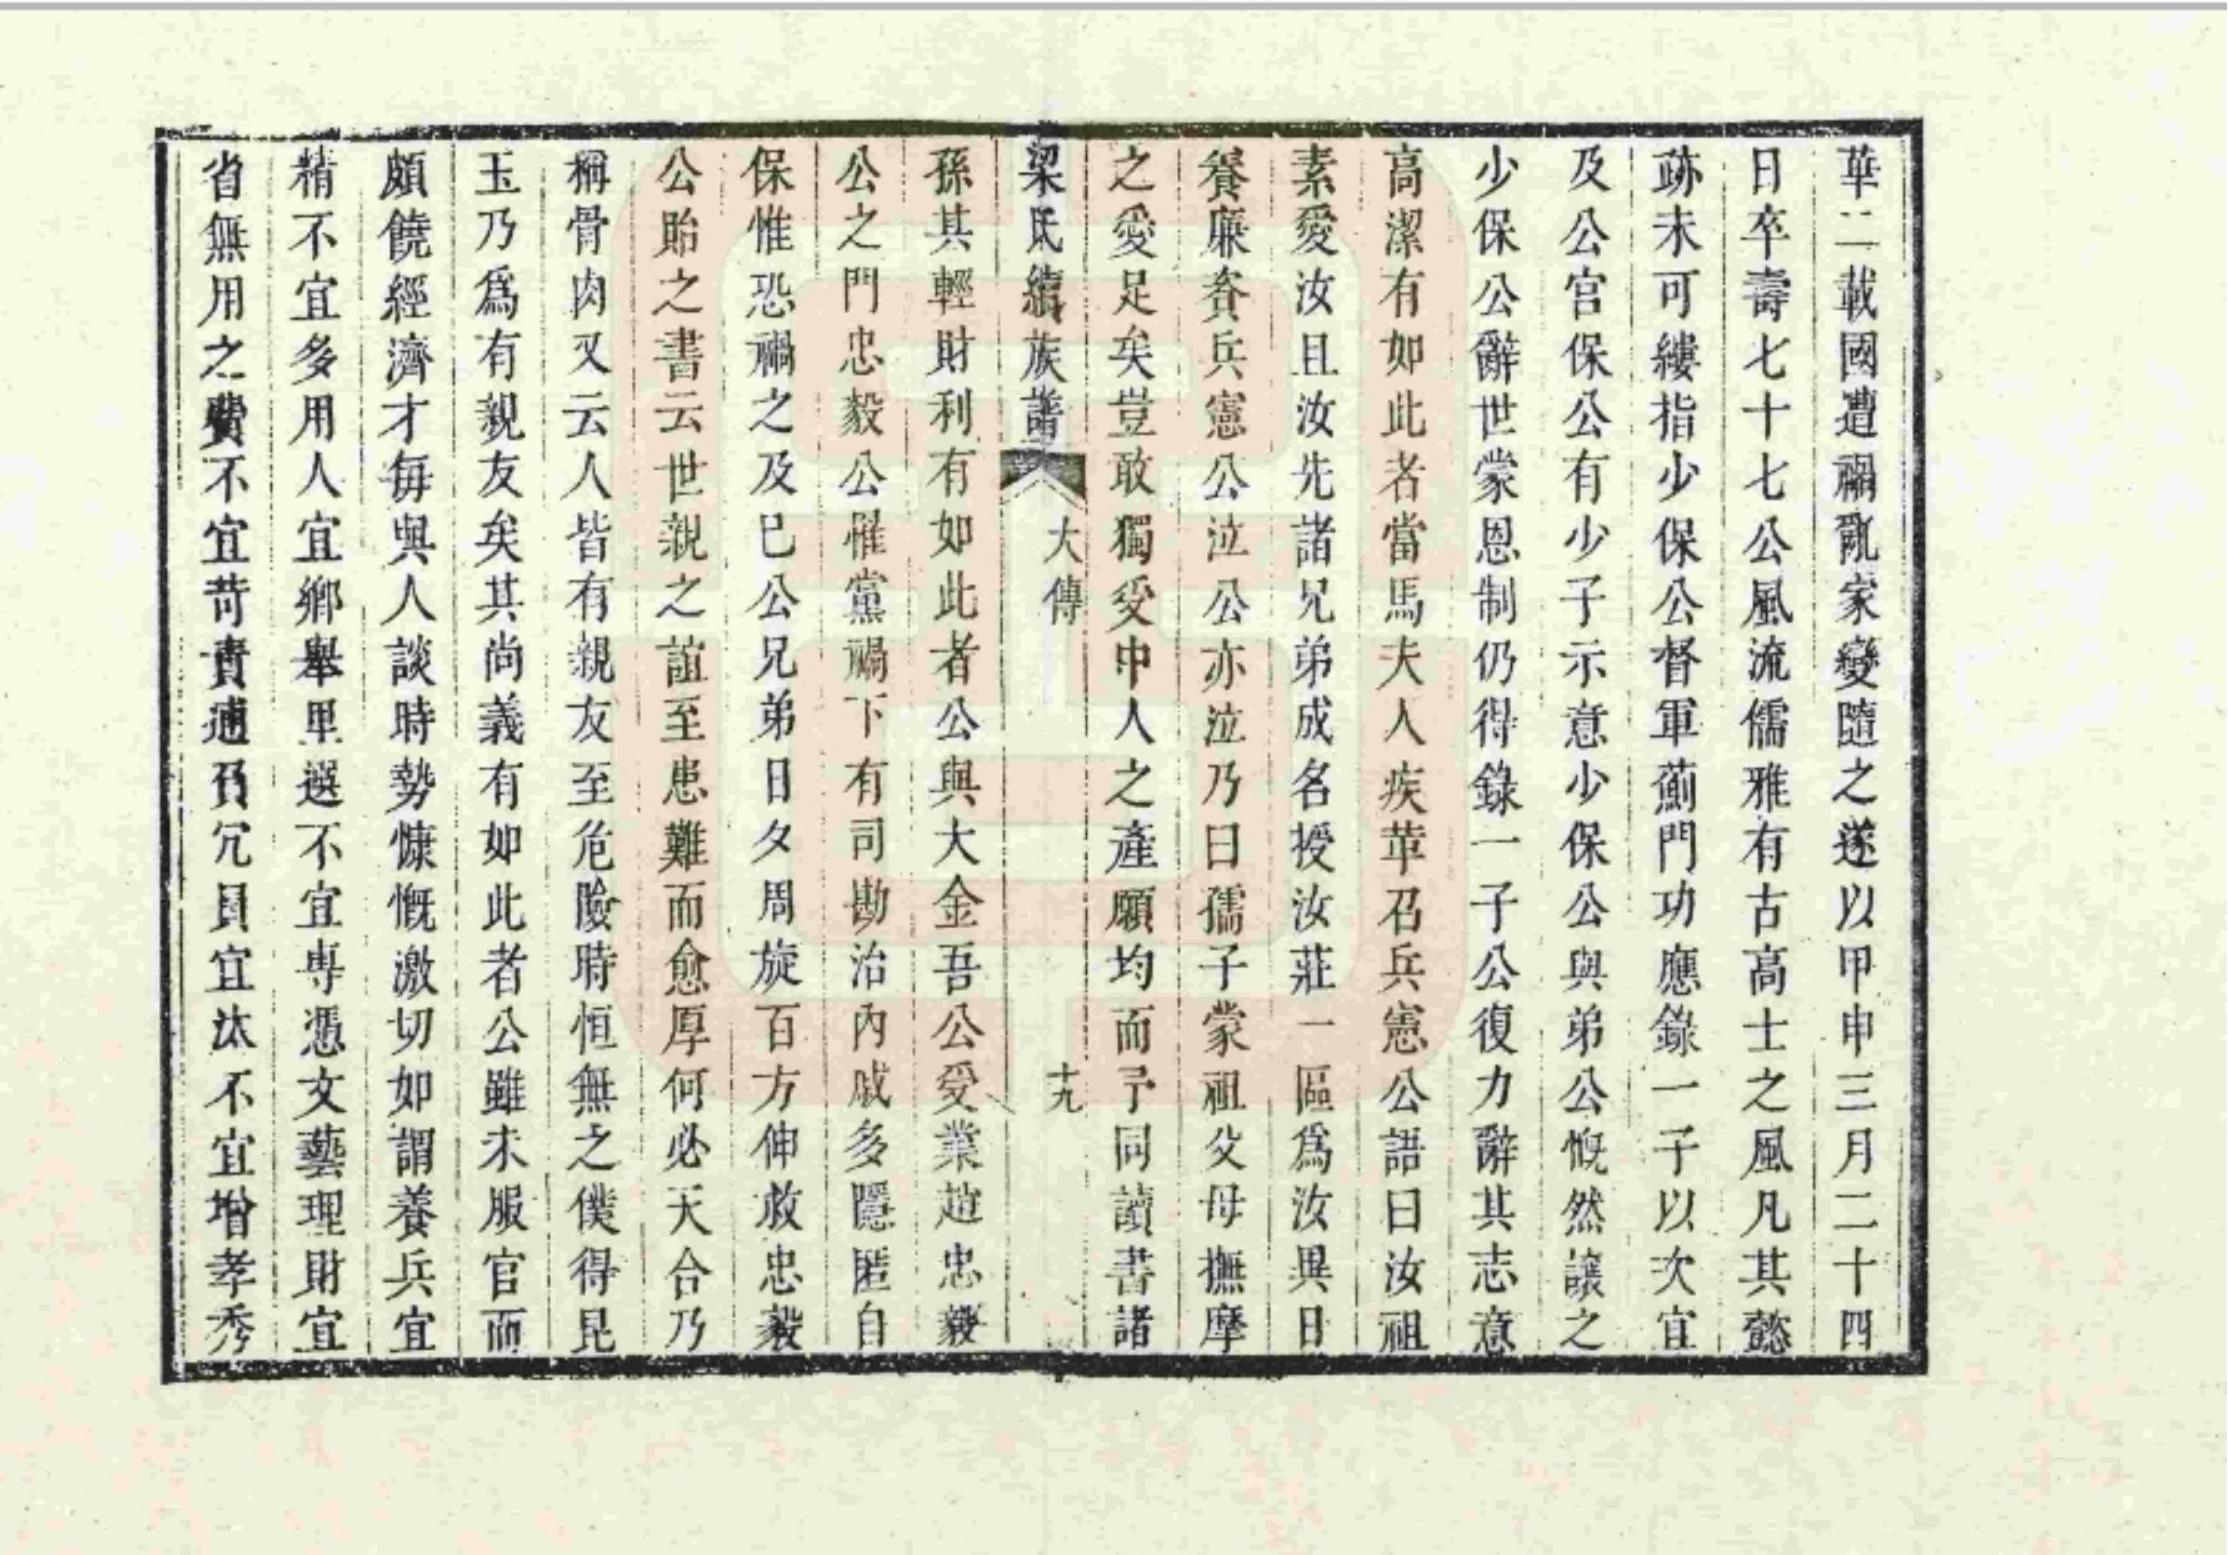 華二載國遭禍亂家變隨之遂以甲申三月二十四
日卒壽七十七公風流儒雅有古高士之風凡其懿
跡未可縷指少保公督軍薊門功應錄一子以次宜
及公宮保公有少子示意少保公與弟公慨然讓之
少保公辭世蒙恩制仍得錄一子公復力辭其志意
高潔有如此者當馬夫人疾革召兵憲公語曰汝祖
素愛汝且汝先諸兄弟成名授汝莊一區爲汝異日
餐廉養兵憲公泣公亦泣乃曰孺子蒙祖父母撫摩
之愛足矣豈敢獨受中人之產願均而予同讀書諸
梁氏續族譜 大傳 十九
孫其輕財利有如此者公與大金吾公受業趙忠毅
公之門忠毅公罹黨禍下有司勘治內戚多隱匿自
保惟恐禍之及已公兄弟日夕周旋百方伸救忠毅
公貽之書云世親之誼至患難而愈厚何必天合乃
稱骨肉又云人皆有親友至危險時恒無之僕得昆
玉乃爲有親友矣其尚義有如此者公雖未服官而
頗饒經濟才每與人談時勢慷慨激切如謂養兵宜
精不宜多用人宜鄉舉里選不宜專憑文藝理財宜
省無用之費不宜苛責逋負冗員宜汰不宜增孝秀